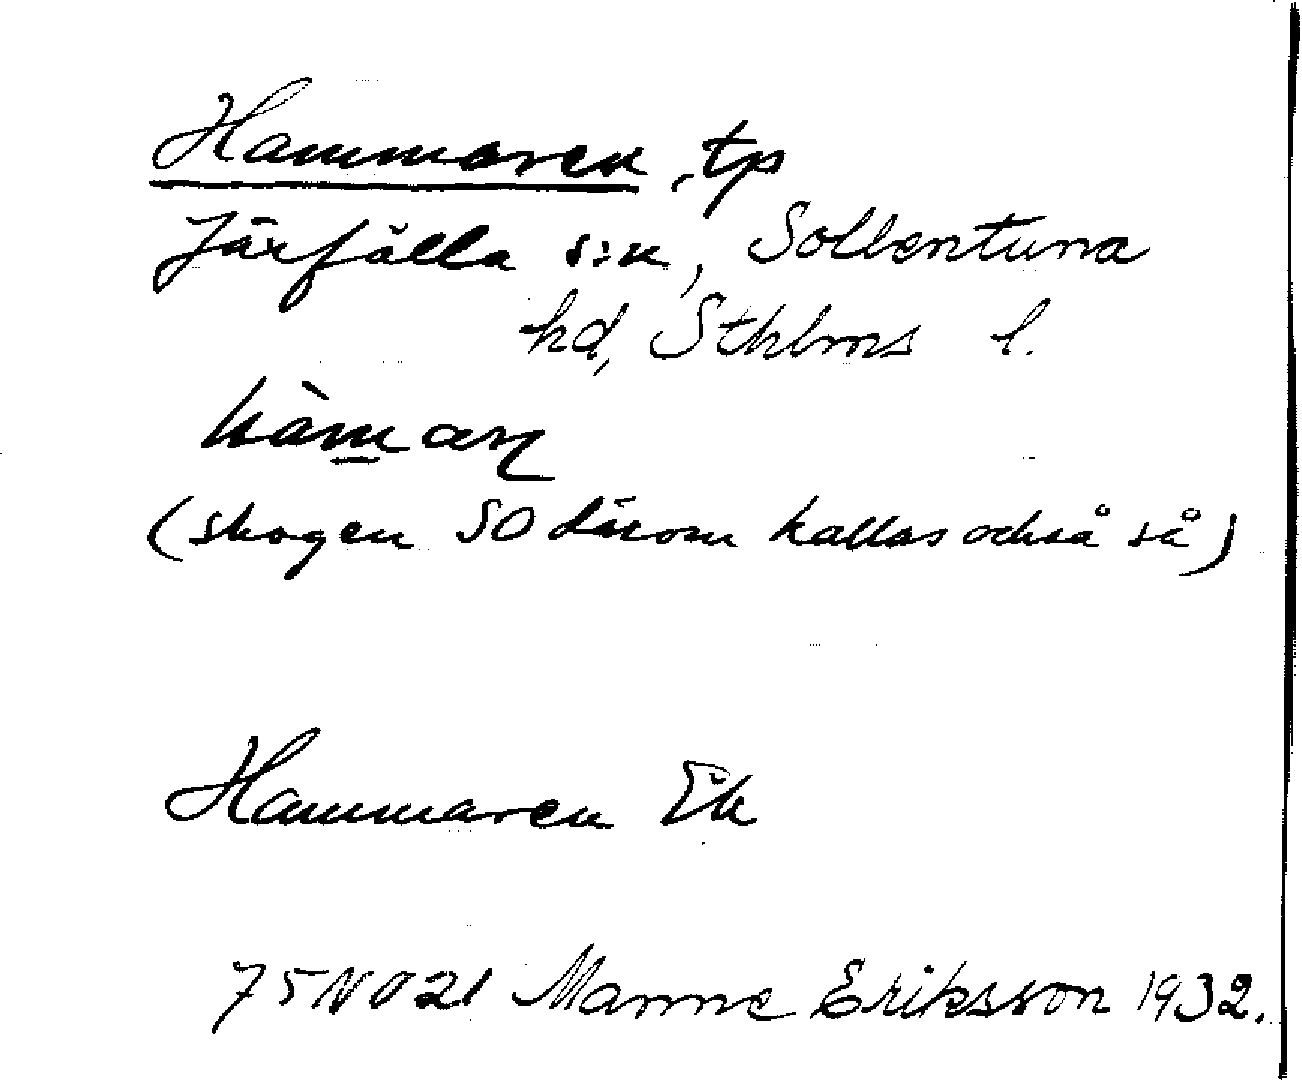 Hammaren, tp
Järfälla s:n, Sollentuna
hd, Sthlms l.
hàmaṛ
(skogen SO därom kallas också så)
Hammaren Ek
75 NO 21 Manne Eriksson 1932.